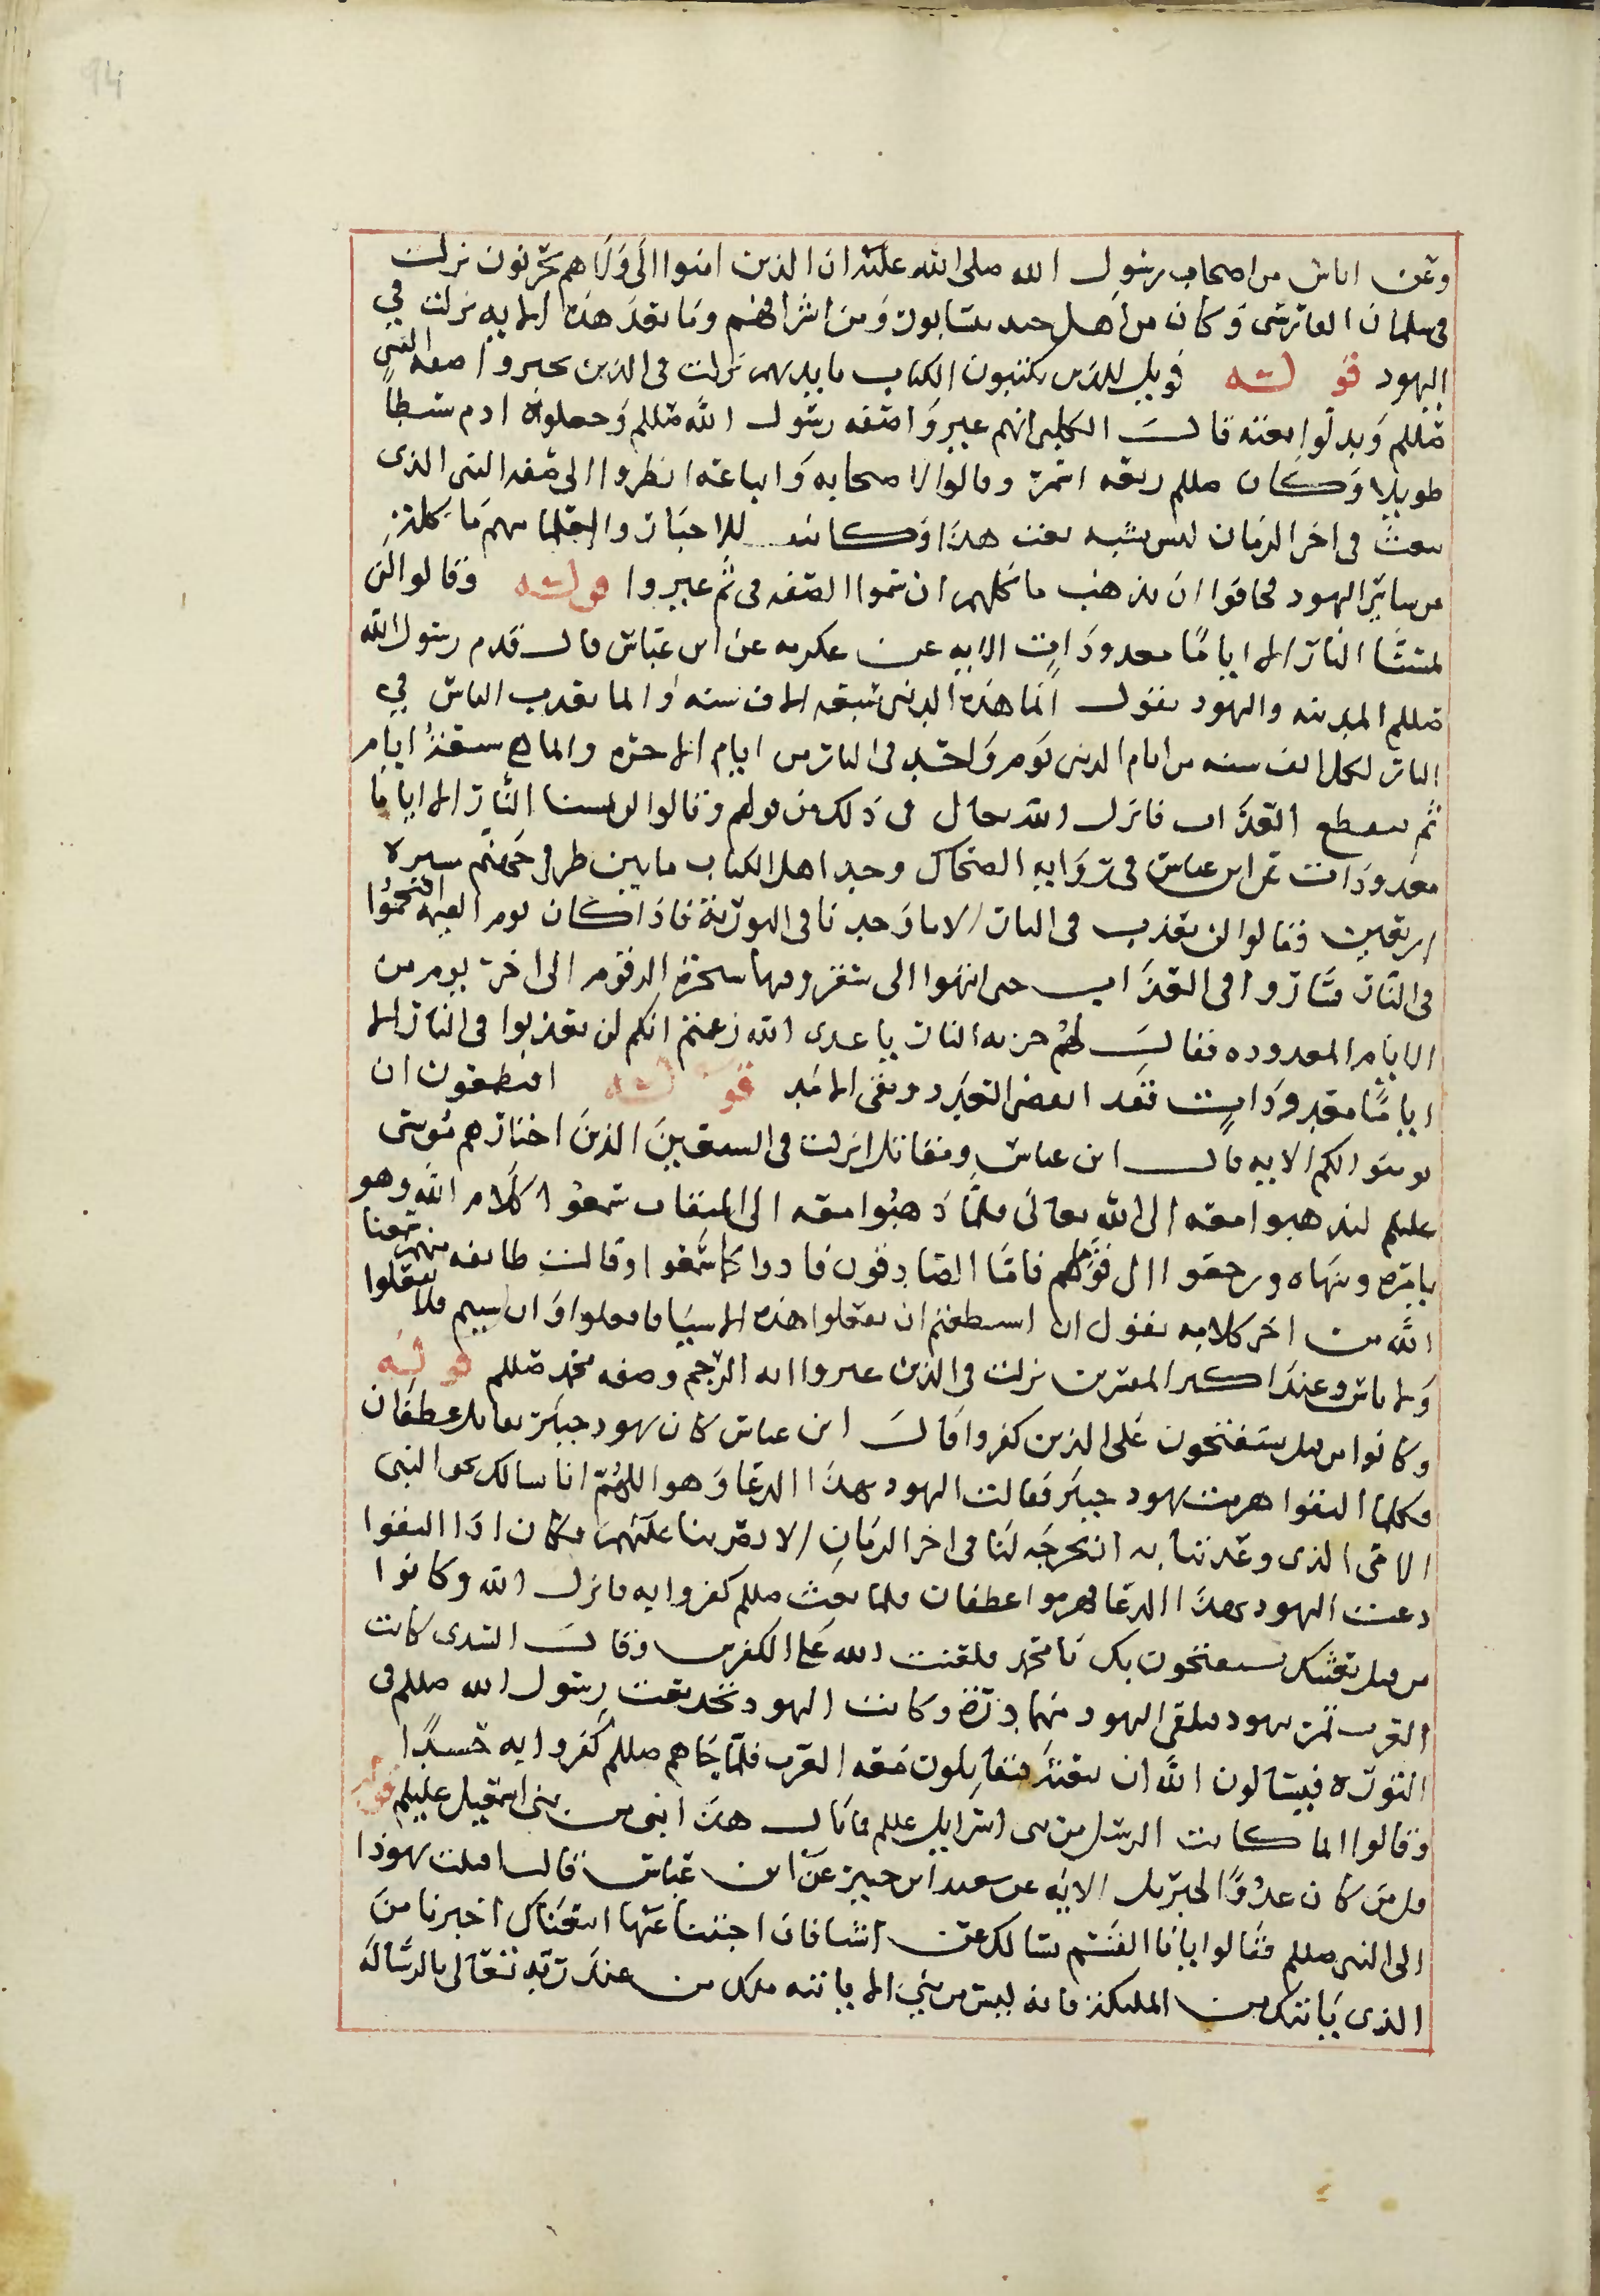 94
وعن اناس من اصحاب رسول الله صلى الله عليه ان الذين امنوا الى ولا هم يحزنون نزلت
في سلمان الفارسي وكان من اهل جند سابور ومن اشرافهم وما بعد هذه الايه نزلت في
اليهود قوله فويل للذين يكتبون الكتاب بايديهم نزلت في الذين غيروا صفه النبي
صللم وبدلوا نعته قال الكلبي انهم غيروا صفه رسول الله صللم وجعلوه ادم سبطا
طويلا وكان صللم ربعه اسمر وقالوا لاصحابه واتباعه انظروا الى صفه النبي الذي
يبعث في اخر الزمان ليس يشبه نعت هذا وكانت للاحبار والعلما منهم ماكله
من ساير اليهود فخافوا ان يذهب ماكلهم ان بينوا الصفه فمن ثم غيروا قوله وقالوا لن
تمسنا النار الا اياما معدودات الايه عن عكرمه عن ابن عباس قال قدم رسول الله
صللم المدينه واليهود تقول انما هذه الدنيا سبعه الاف سنه وانما يعذب الناس في
النار لكل الف سنه من ايام الدنيا يوم واحد في النار من ايام الاخره وانما هي سبعة ايام
ثم ينقطع العذاب فانزل الله تعالى في ذلك من قولهم وقالوا لن تمسنا النار الا اياما
معدودات عن ابن عباس في روايه الضحاك وجد اهل الكتاب ما بين طرفي جهنم مسيره
اربعين فقالوا لن نعذب في النار الا ما وجدنا في التوريه فاذا كان يوم القيمه اقتحموا
في النار فساروا في العذاب حتى انتهوا الى سقر وفيها شجره الزقوم الى اخر يوم من
الايام المعدوده فقال لهم خزنه النار يا عدى الله زعمتم انكم لن تعذبوا في النار الا
اياما معدودات فقد انقضى العدد وبقى الابد قوله افتطمعون ان
يومنوا لكم الايه قال ابن عباس ومقاتل انزلت في السبعين الذين اختارهم موسى
عليلم ليذهبوا معه الى الله تعالى فلما ذهبوا معه الى الميقات سمعوا كلام الله وهو
يامره وينهاه ورجعوا الى قومهم فاما الصادقون فادوا كما سمعوا وقالت طايفه منهم سمعنا
الله من اخر كلامه يقول ان استطعتم ان تفعلوا هذه الاشيا فافعلوا وان شيتم فلا تفعلوا
ولا باس وعند اكثر المفسرين نزلت في الذين غيروا ايه الرجم وصفه محمد صللم قوله
وكانوا من قبل يستفتحون على الذين كفروا قال ابن عباس كان يهود خيبر تقاتل غطفان
فكلما التقوا هزمت يهود خيبر فعاذت اليهود بهذا الدعا وهو اللهم انا نسالك بحق النبي
الامي الذي وعدتنا به ان تخرجه لنا في اخر الزمان الا نصرتنا عليهم فكان اذا التقوا
دعت اليهود بهذا الدعا فهزموا غطفان فلما بعث صللم كفروا به فانزل الله وكانوا
من قبل بعثك يستفتحون بك يا محمد فلعنت الله على الكفرين وقال السدى كانت
العرب تمر بيهود فتلقى اليهود منهم اذى وكانت اليهود تجد نعت رسول الله صللم في
التوره فيسالون الله ان يبعثه فيقاتلون معه العرب فلما جاهم صللم كفروا به حسدا
وقالوا انما كانت الرسل من بنى اسرايل عللم فما بال هذا انبى من بنى اسمعيل عليلم قوله
قل من كان عدوا لجبريل الايه عن سعيد ابن جبير عن ابن عباس قال اقبلت يهود
الى النبي صللم فقالوا يابا القسم نسالك عن اشيا فان اجبتنا عنها اتبعناك اخبرنا من
الذي ياتيك من الملئكه فانه ليس من نبي الا ياتيه ملك من عند ربه تعالى بالرساله